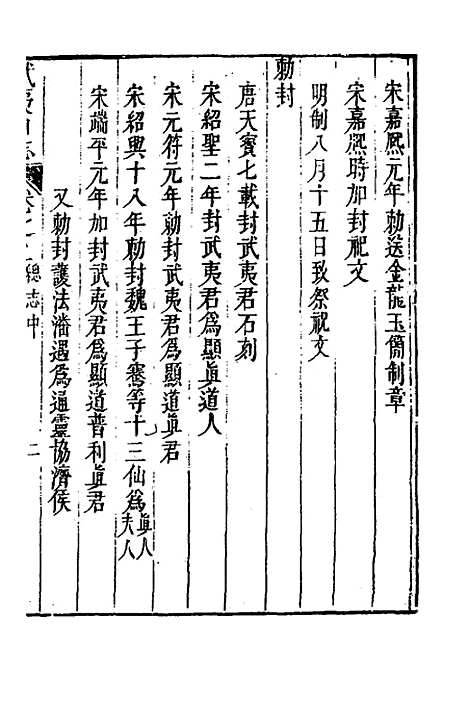 宋嘉熈元年勅送金龍玉簡制章
宋嘉熈時加封祝文
明制八月十五日致祭祝文
勅封
唐天寳七載封武夷君石刻
宋紹聖二年封武夷君爲顯眞道人
宋元符元年勅封武夷君爲顯道眞君
宋紹興十八年勅封魏王子騫等十三仙爲眞人夫人
宋端平元年加封武夷君爲顯道普利眞君
又勅封護法潘遇爲通靈協濟侯
武夷山志 卷之 總志中 二